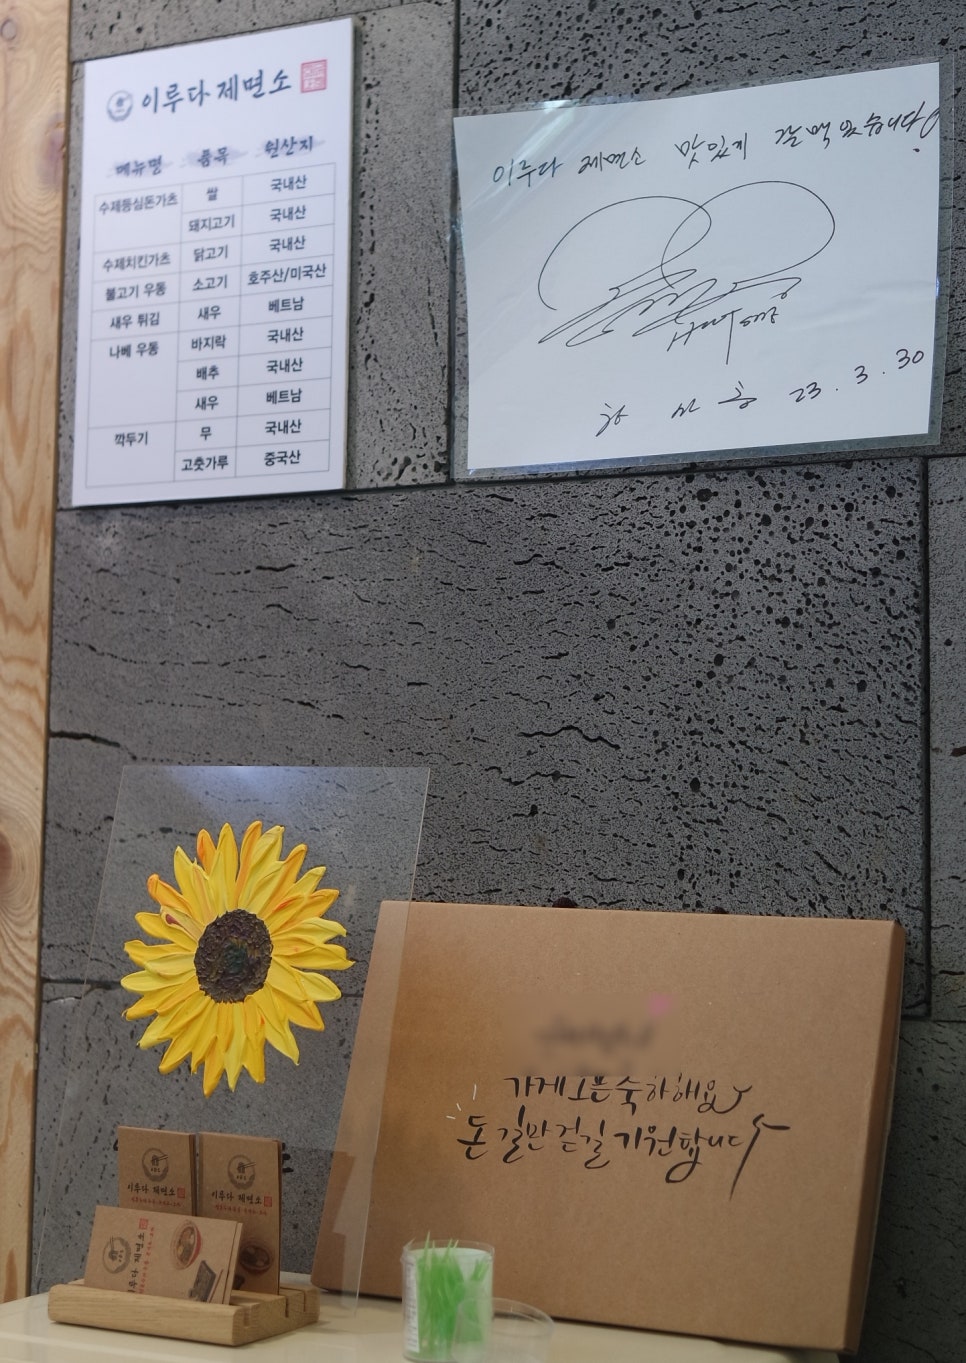 이루다 제면소
메뉴명 품목 원산지
수제등심돈가츠 쌀 국내산
돼지고기 국내산
수제치킨가츠 닭고기 국내산
불고기 우동 소고기 호주산/미국산
새우 튀김 새우 베트남
나베 우동 바지락 국내산
배추 국내산
새우 베트남
깍두기 무 국내산
고춧가루 중국산
이루다 제면소 맛있게 잘 먹었습니다!
23. 3. 30
가게오픈 축하해요
돈길만 걷길 기원합니다
이루다 제면소
이루다 제면소